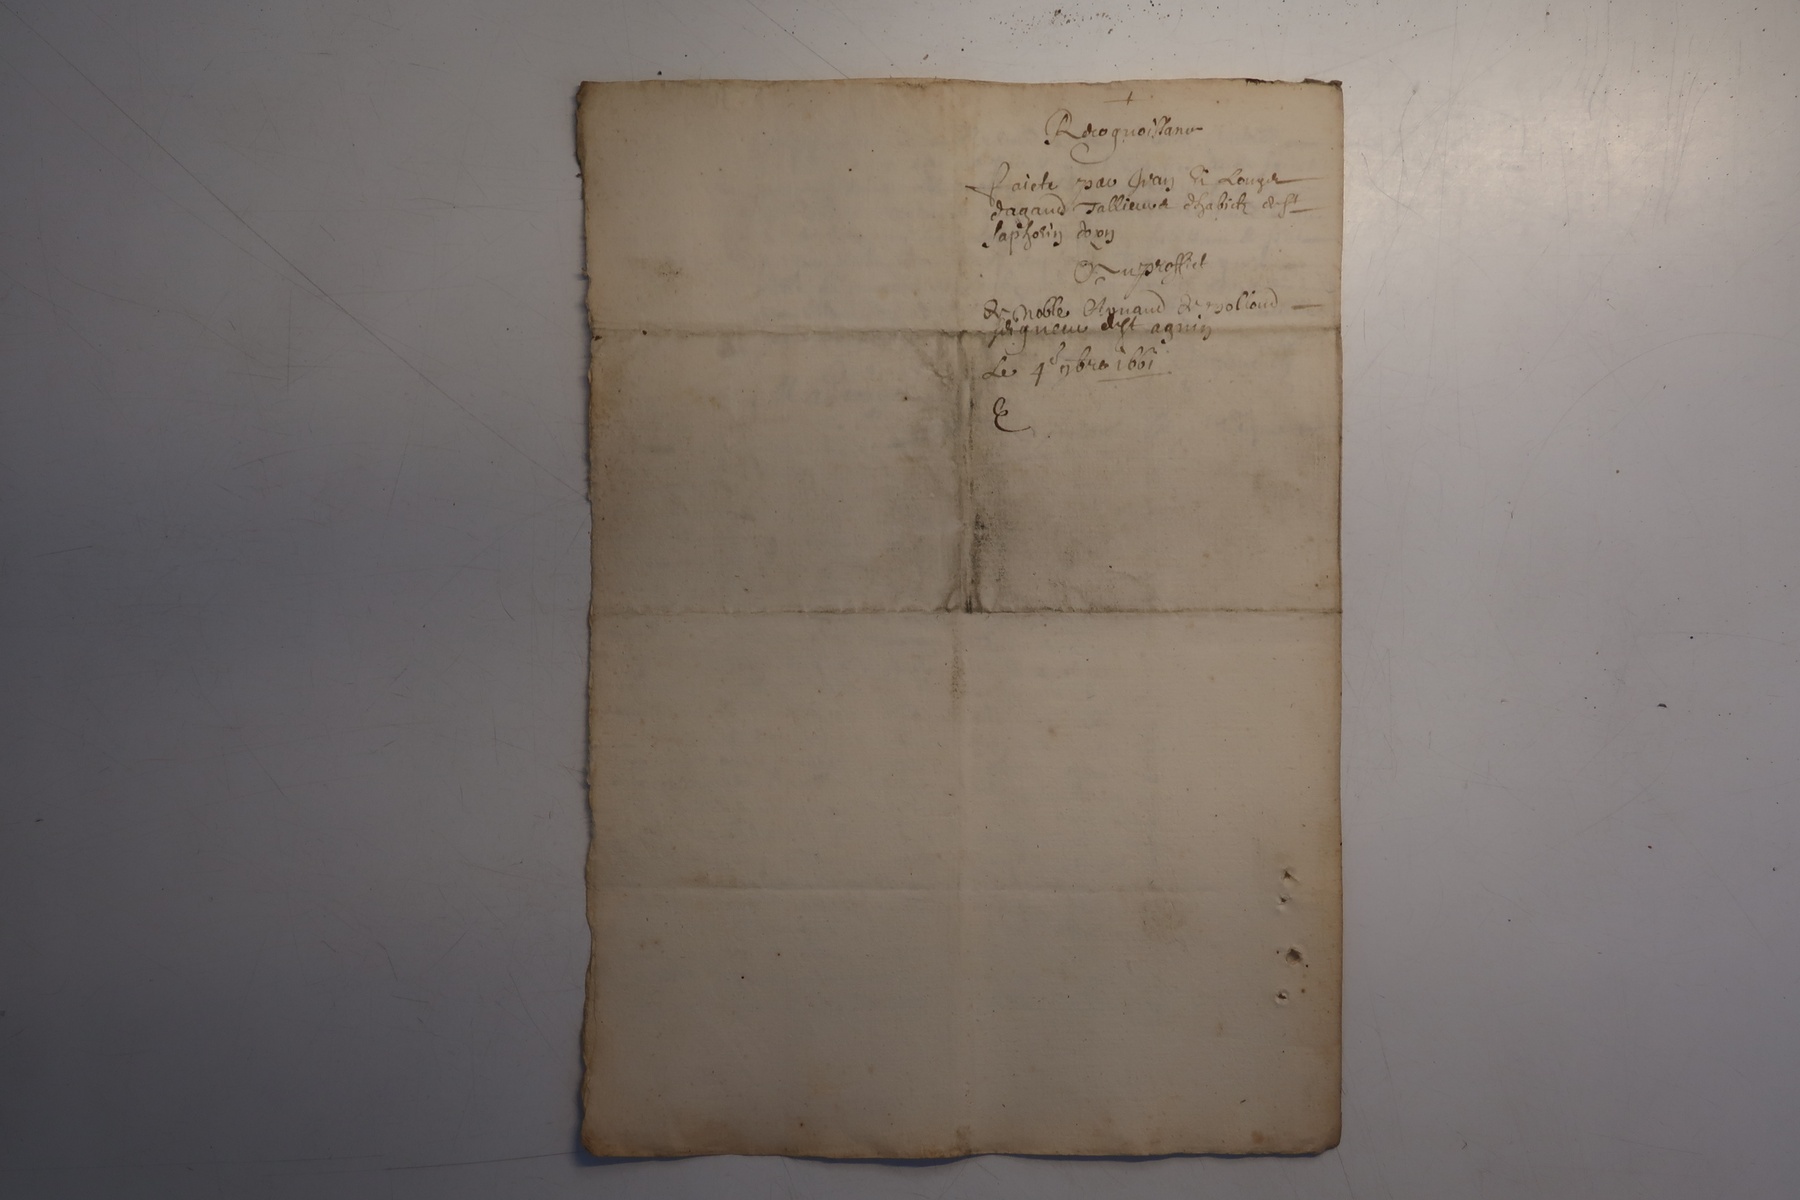 +
Recognoissance
Faicte par Jean et Louys
dagaud Tallieurs d'habictz de St
saphorin dozon
Au proffict
de Noble Aymard de poliond
seigneur de St agnin
Le 4e 9bre 1661